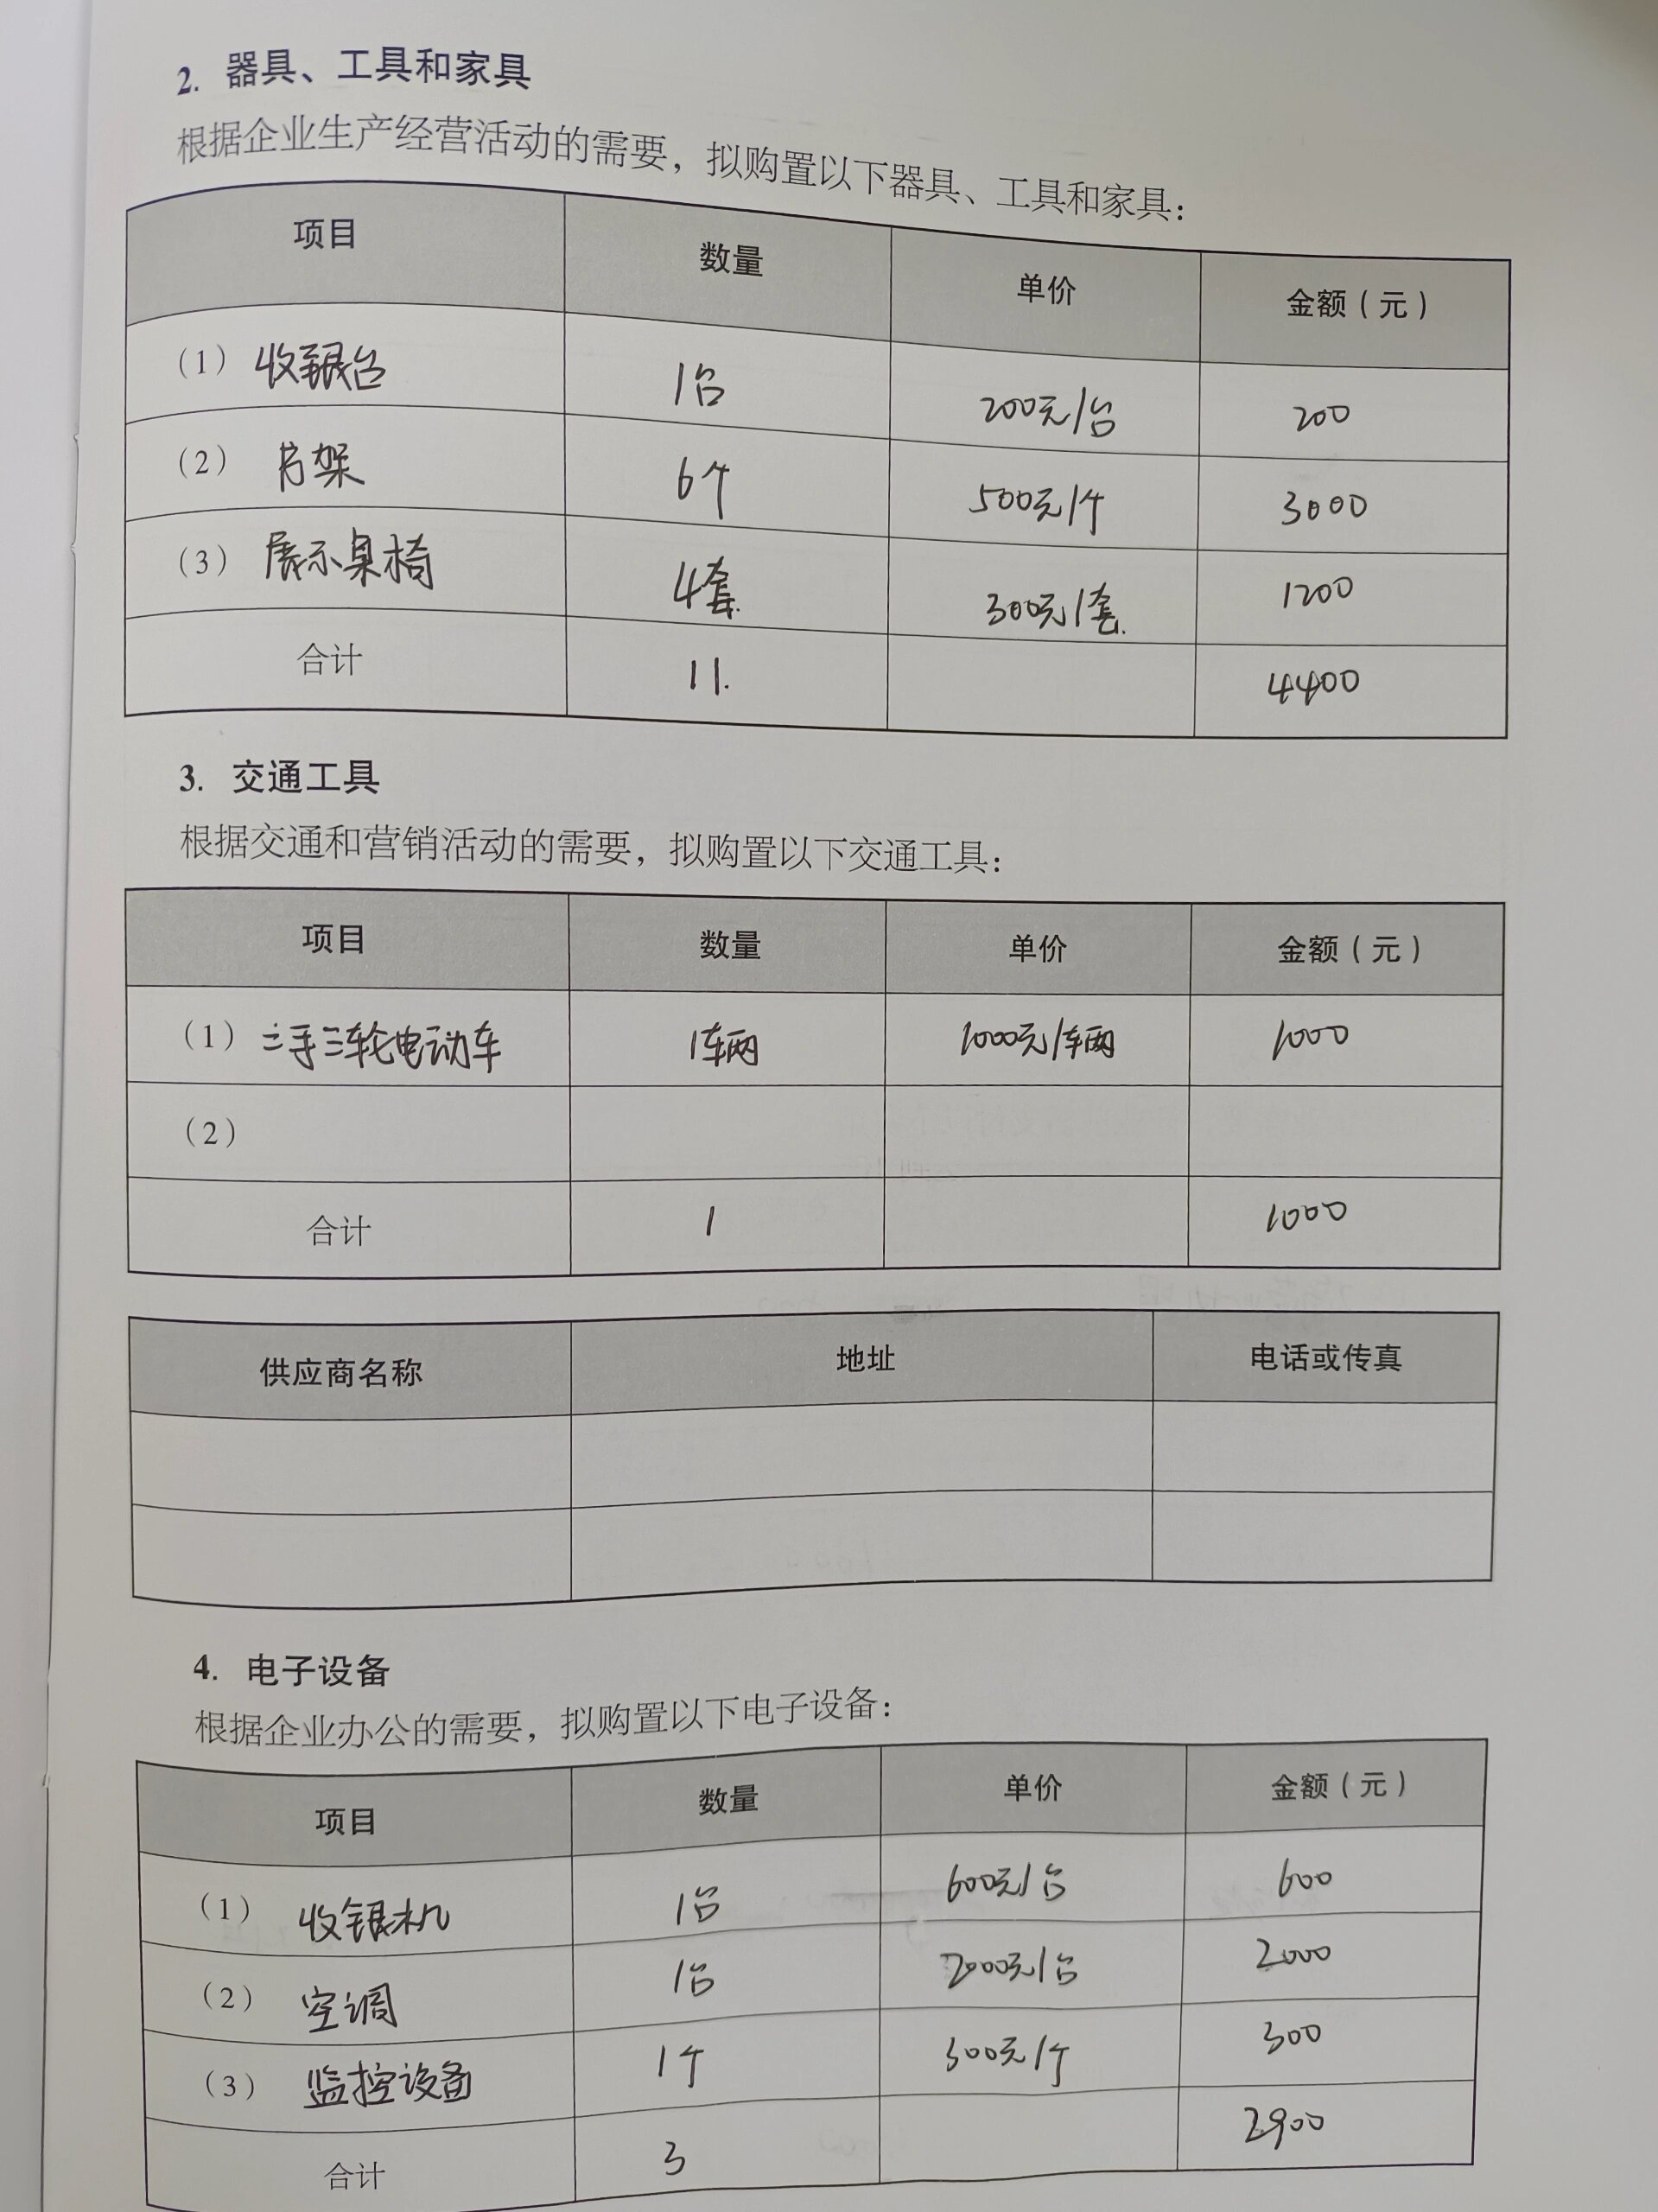 2. 器具、工具和家具
根据企业生产经营活动的需要，拟购置以下器具、工具和家具：
项目 数量 单价 金额（元）
（1）收银台 1台 200元/台 200
（2）书架 6个 500元/个 3000
（3）展示桌椅 4套 300元/套 1200
合计 11 4400
3. 交通工具
根据交通和营销活动的需要，拟购置以下交通工具：
项目 数量 单价 金额（元）
（1）二手三轮电动车 1辆 1000元/辆 1000
（2）
合计 1 1000
供应商名称 地址 电话或传真
4. 电子设备
根据企业办公的需要，拟购置以下电子设备：
项目 数量 单价 金额（元）
（1）收银机 1台 600元/台 600
（2）空调 1台 2000元/台 2000
（3）监控设备 1个 300元/个 300
合计 3 2900